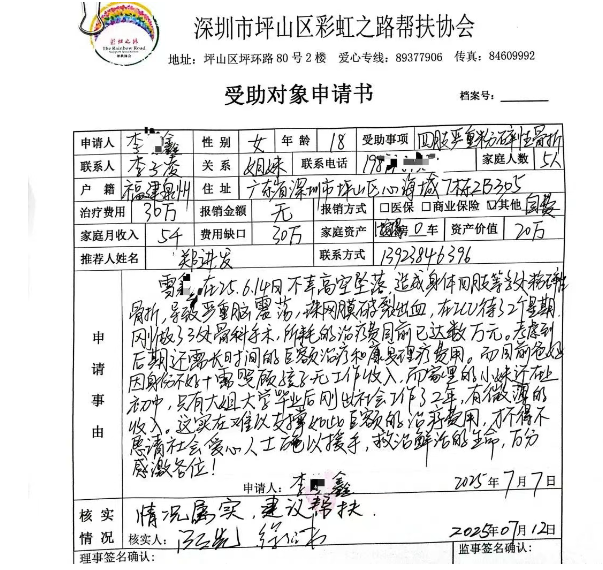 彩虹之路
The Rainbow Road
深圳市坪山区彩虹之路帮扶协会
地址：坪山区坪环路80号2楼 爱心专线：89377906 传真：84609992
受助对象申请书 档案号：
申请人 李 鑫 性别 女 年龄 18 受助事项 四肢严重粉碎性骨折
联系人 李 凌 关系 姐妹 联系电话 198 家庭人数 5人
户籍 福建泉州 住址 广东省深圳市坪山区心海城7栋2B305
治疗费用 30万 报销金额 无 报销方式 □医保 □商业保险 ☑其他
家庭月收入 54 费用缺口 30万 家庭资产 房0车 资产价值 20万
推荐人姓名 郑进发 联系方式 13923846396
申请事由
在25.6.14日不幸高空坠落，造成身体四肢等多处粉碎性
骨折，导致严重脑震荡，视网膜破裂出血，在ICU待了2个星期，
刚做了3处骨科手术，所耗的治疗费目前已达数万元。考虑到
后期还需长时间的巨额治疗和康复理疗费用。而目前爸妈
因身体不好+需照顾孩子无工作收入，而家里的小妹还在上
初中，只有大姐大学毕业后刚出社会工作了2年，有微薄的
收入。这实在难以支撑如此巨额的治疗费用，才不得不
恳请社会爱心人士 以援手，救治鲜活的生命，万分
感激各位！
申请人：李 鑫 2025年7月7日
核实情况 情况属实，建议帮扶.
核实人： 2025年07月12日
理事签名确认： 监事签名确认：